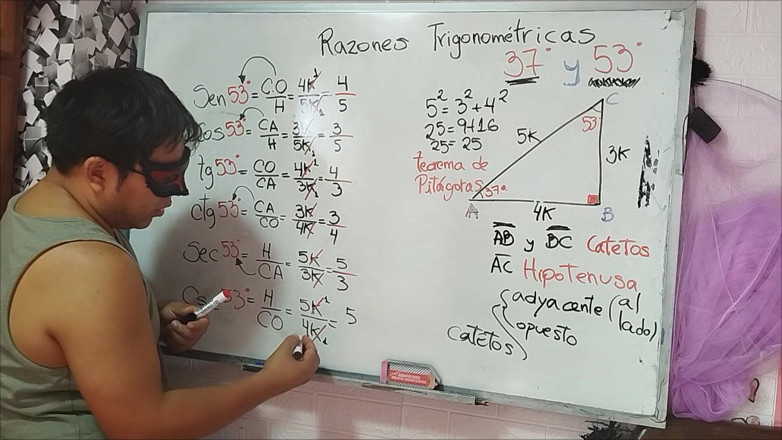 Razones Trigonométricas
37° y 53°
Sen 53° = CO/H = 4K/5K = 4/5
Cos 53° = CA/H = 3K/5K = 3/5
tg 53° = CO/CA = 4K/3K = 4/3
ctg 53° = CA/CO = 3K/4K = 3/4
Sec 53° = H/CA = 5K/3K = 5/3
Cs 53° = H/CO = 5K/4K = 5
5² = 3² + 4²
25 = 9+16
25 = 25
teorema de
Pitágoras
C
53°
5K
3K
37°
A
4K
B
AB y BC Catetos
AC Hipotenusa
catetos { adyacente (al lado)
opuesto